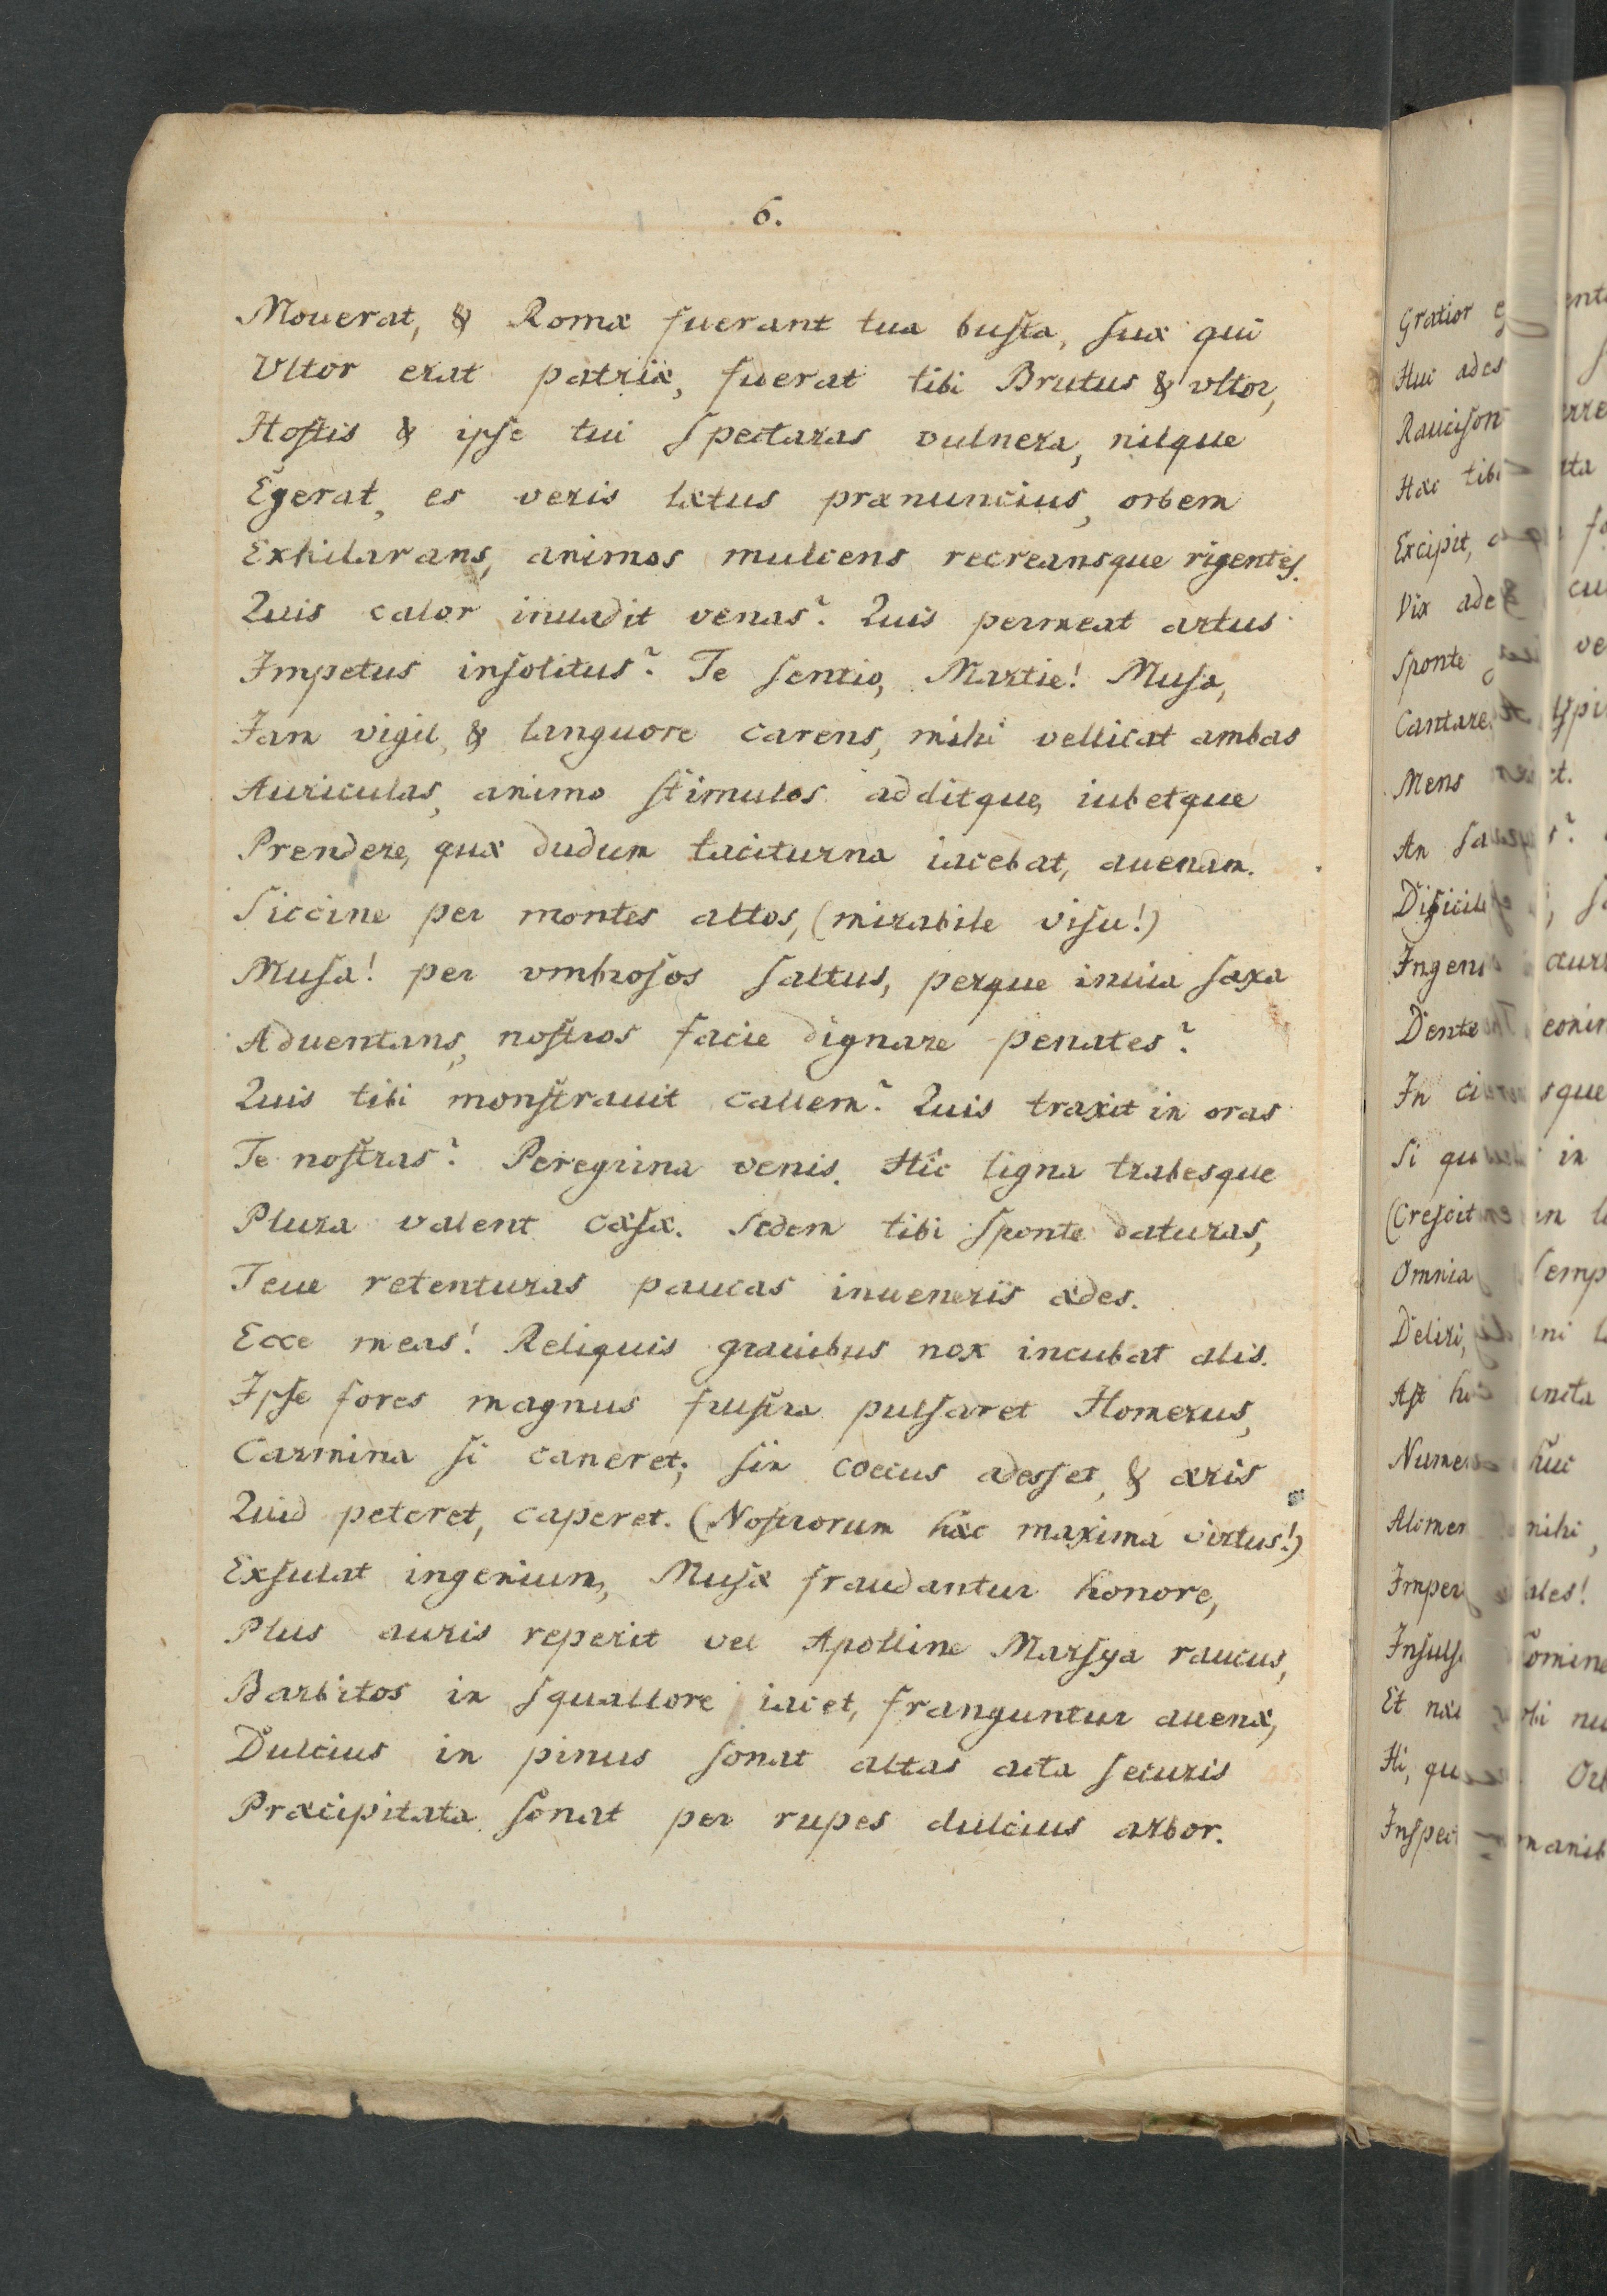 6.
Mouerat, & Romæ fuerant tua busta, suæ qui
Vltor erat patriæ, fuerat tibi Brutus & vltor,
Hostis & ipse tui spectaras vulnera, nilque
Egerat, es veris lætus prænuncius, orbem
Exhilarans, animos mulcens recreansque rigentes.
Quis calor inuadit venas? Quis permeat artus
Impetus insolitus? Te sentio, Martie! Musa,
Jam vigil, & languore carens, mihi vellicat ambas
Auriculas, animo stimulos additque, iubetque
Prendere, quæ dudum taciturna iacebat, auenam.
Siccine per montes altos, (mirabile visu!)
Musa! per vmbrosos saltus, perque inuia saxa
Aduentans, nostros facie dignare penates?
Quis tibi monstrauit callem? Quis traxit in oras
Te nostras? Peregrina venis. Hic ligna trabesque
Plura valent cæsæ. Sedem tibi sponte daturas,
Teue retenturas paucas inueneris ædes.
Ecce meas! Reliquis grauibus nox incubat alis.
Ipse fores magnus frustra pulsaret Homerus,
Carmina si caneret; sin coecus adesset, & æris
Quid peteret, caperet. (Nostrorum hæc maxima virtus!)
Exsulat ingenium, Musæ fraudantur honore,
Plus auris reperit vel Apolline Marsya raucus,
Barbitos in squallore iacet, franguntur auenæ,
Dulcius in pinus sonat altas acta securis
Præcipitata sonat per rupes dulcius arbor.
Gratior
Huc ades
Excipit,
Vix
Sponte
Mens
An
In
Si in
Omnia
Deliri,
Ast
huc
Et
Hi,